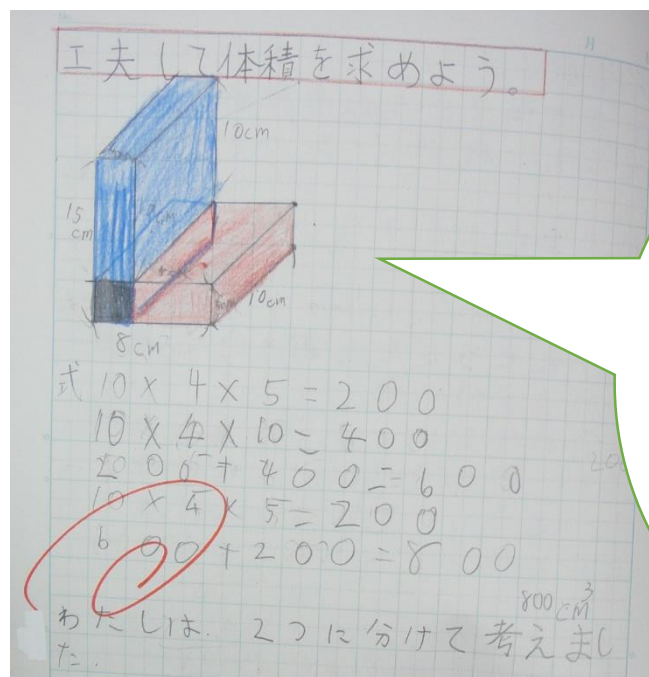 工夫して体積を求めよう。
10cm
15
cm
10cm
8cm
式 10 × 4 × 5 = 200
10 × 4 × 10 = 400
200 + 400 = 600
10 × 4 × 5 = 200
600 + 200 = 800
800cm³
わたしは、2つに分けて考えまし
た。